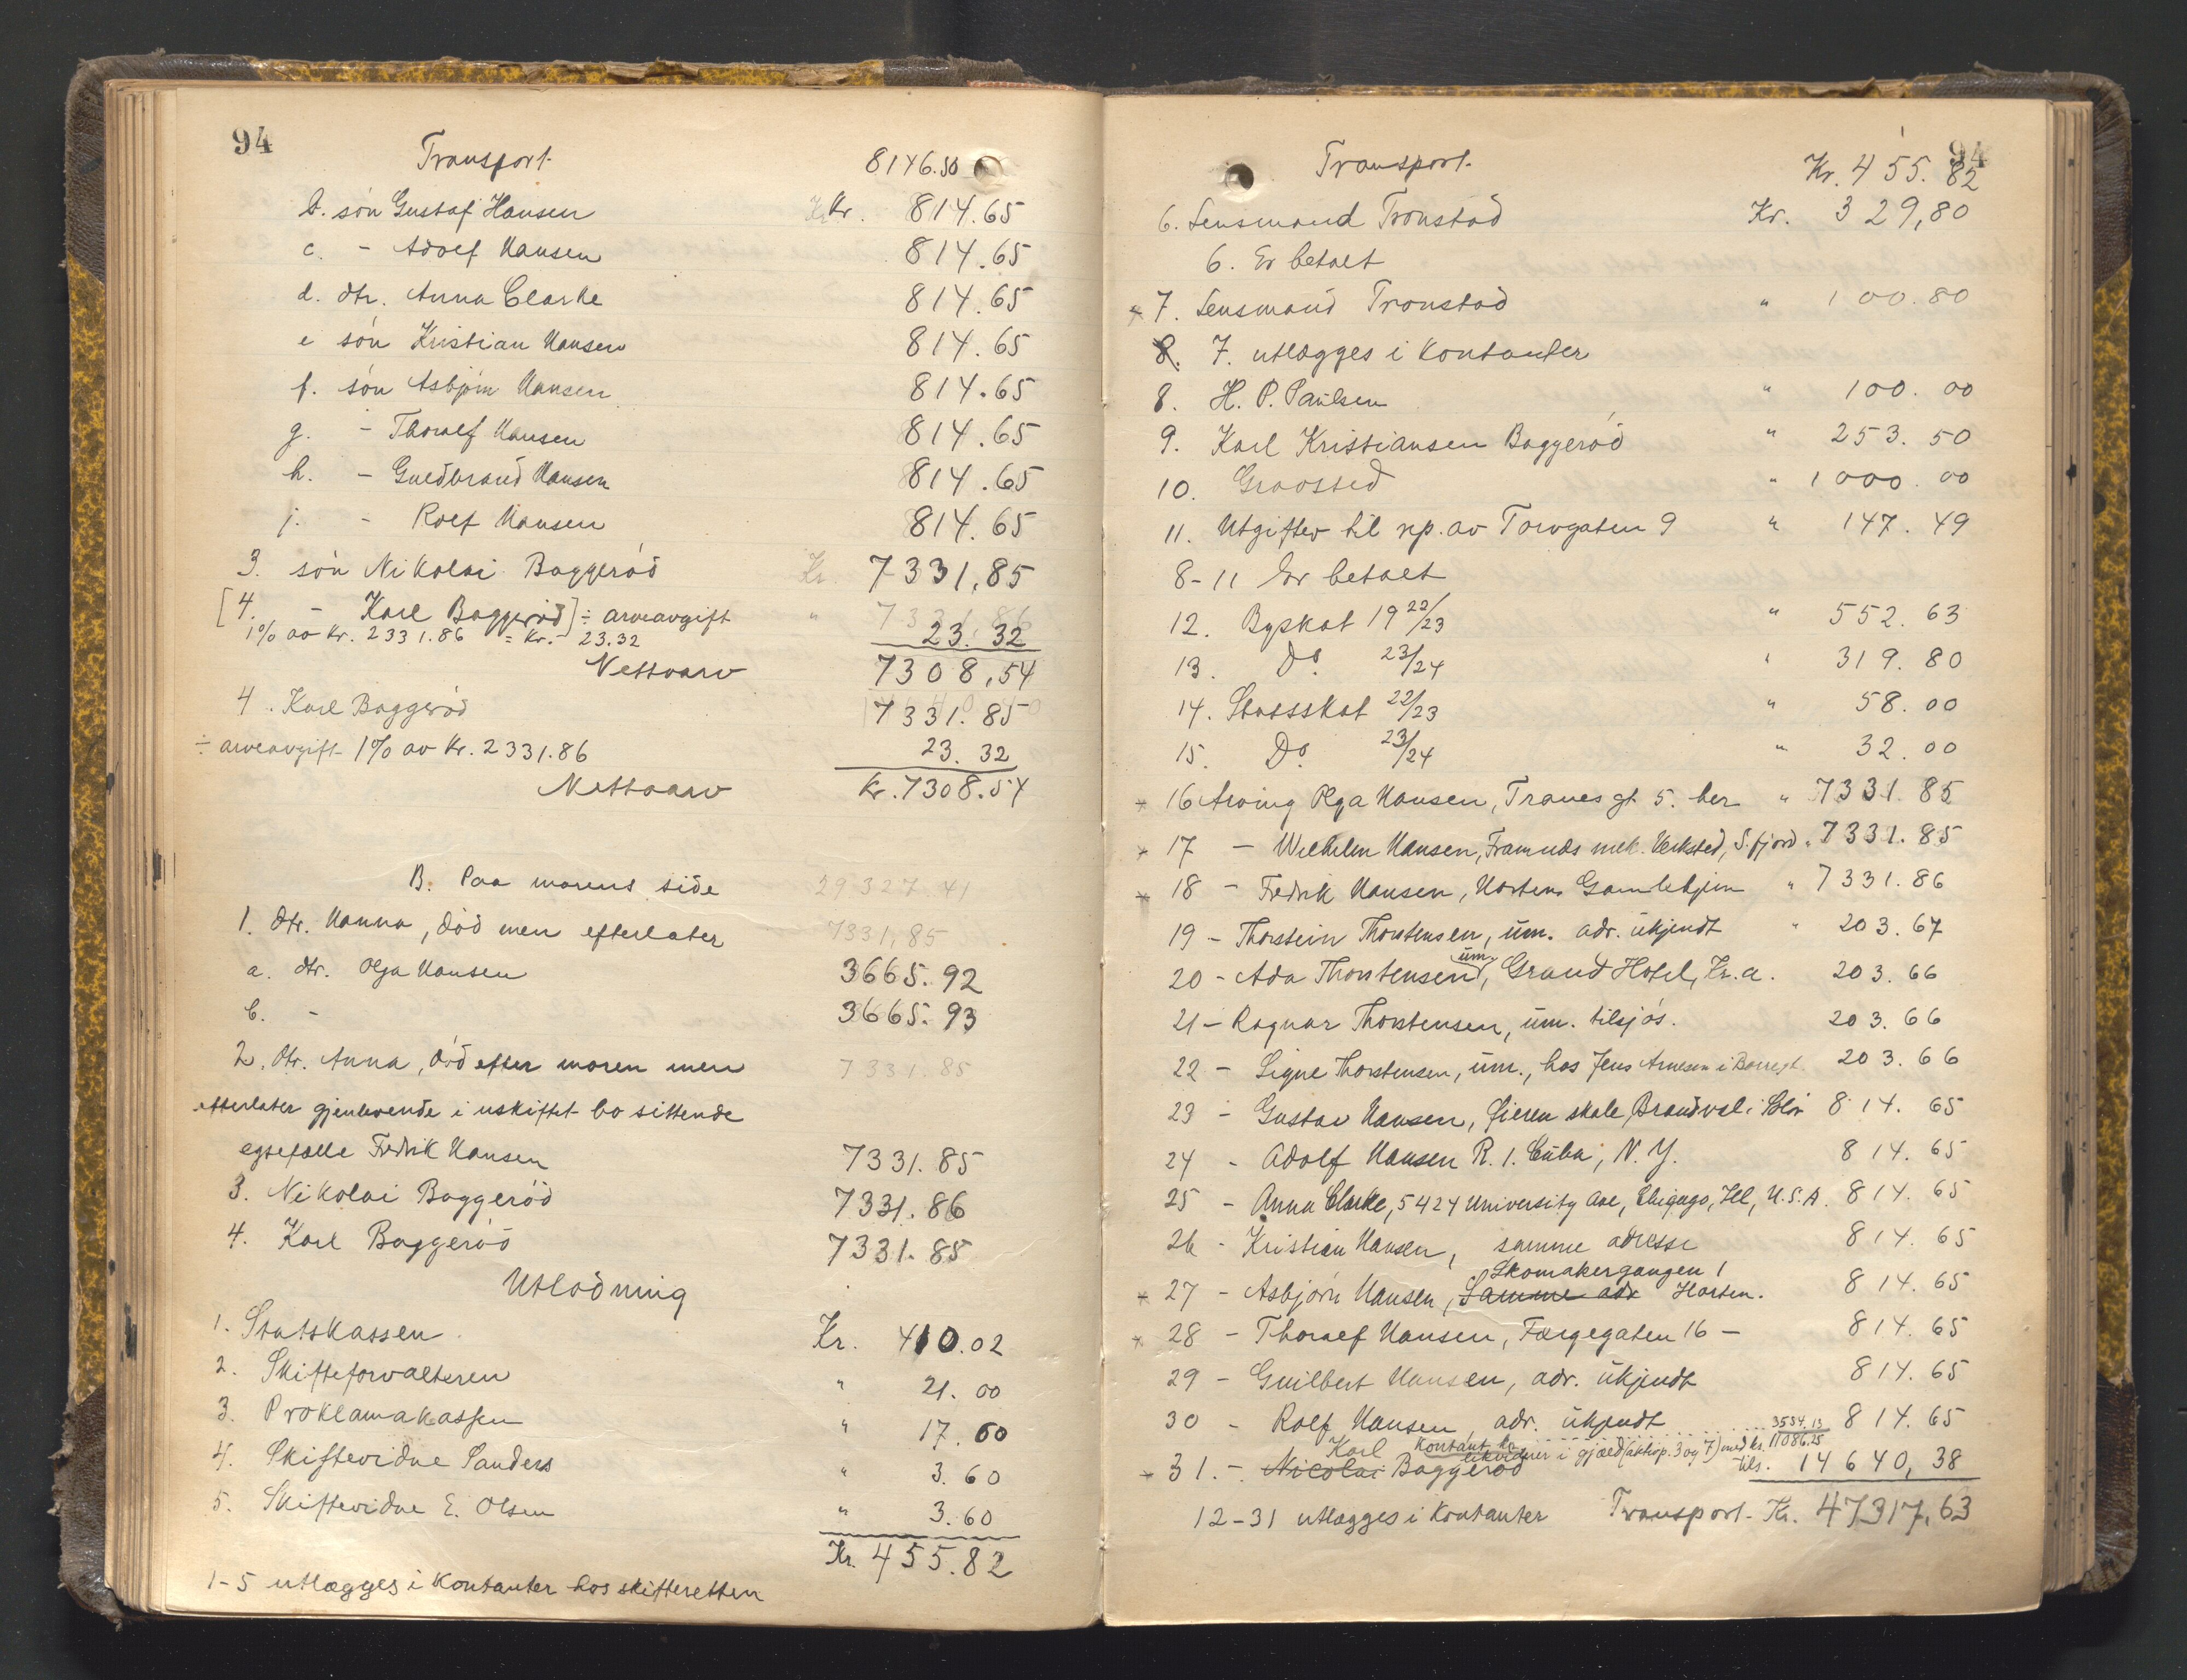 94
Transport 8146.50
b. søn Gustaf Hansen Kr. 814.65
c. - Adolf Hansen 814.65
d. dtr. Anna Clarke 814.65
e søn Kristian Hansen 814.65
f. søn Asbjørn Hansen 814.65
g. - Thoralf Hansen 814.65
h. - Guldbrand Hansen 814.65
j. - Rolf Hansen 814.65
3. søn Nikolai Baggerød Kr. 7331,85
[4. - Karl Baggerød] ÷ arveavgift " 7331.86
1% av Kr. 2331.86 = Kr. 23.32 23.32
Nettoarv 7308,54
4. Karl Baggerød 7331.85
÷ arveavgift 1% av Kr. 2331.86 23.32
Nettoarv Kr. 7308.54
B. Paa morens side 29327.41
1. dtr. Hanna, død men efterlater 7331,85
a. dtr. Olga Hansen 3665.92
b. - 3665.93
2. dtr. Anna, død efter moren men 7331.85
efterlater gjenlevende i uskiftet bo sittende
egtefælle Fredrik Hansen 7331.85
3. Nikolai Baggerød 7331.86
4. Karl Baggerød 7331.85
Utlodning
1. Statskassen Kr. 410.02
2. Skifteforvalteren " 21.00
3. Proklamakassen " 17.60
4. Skiftevidne Sanders " 3.60
5. Skiftevidne E. Olsen " 3.60
Kr. 455.82
1-5 utlægges i kontanter hos skifteretten
94
Transport Kr. 455.82
6. Lensmand Tronstad Kr. 329,80
6. Er betalt
x 7. Lensmand Tronstad " 100.80
8. 7. utlægges i kontanter
8. H. P. Paulsen " 100.00
9. Karl Kristiansen Baggerød " 253.50
10. Graasted " 1000.00
11. Utgifter til rep. av Torvgaten 9 " 147.49
8-11 Er betalt
12. Byskat 19 22/23 " 552.63
13. Do. 23/24 " 319.80
14. Statsskat 22/23 " 58.00
15. Do. 23/24 " 32.00
x 16 Arving Olga Hansen, Tranes gt. 5. her " 7331.85
x 17 - Wilhelm Hansen, Framnæs mek. Verksted, S.fjord " 7331.85
x 18 - Fredrik Hansen, Hortens Gamlehjem " 7331.86
19 - Thorstein Thorstensen, um. adr. ukjendt " 203.67
20 - Ada Thorstensen, um. Grand Hotel, Kr.a. 203.66
21 - Ragnar Thorstensen, um. tilsjøs. 203.66
22 - Signe Thorstensen, um., hos Jens Arnesen i Borregt. 203.66
23 - Gustav Hansen, skole, Brandval i Solør 814.65
24 - Adolf Hansen R. 1. Cuba, N.Y. 814.65
25 - Anna Clarke, 5424 University Ave, Chigago, Ill, U.S.A. 814.65
26 - Kristian Hansen, samme adresse 814.65
Skomakergangen 1
x 27 - Asbjørn Hansen, Samme adr Horten. 814.65
x 28 - Thoralf Hansen, Færgegaten 16 - 814.65
29 - Guilbert Hansen, adr. ukjendt 814.65
30 - Rolf Hansen, adr. ukjendt 814.65
Karl Kontant kr. 3534.13
likviderer i gjæld (aktiap. 3 og 7) med kr. 11086.25
x 31. - Nicolai Baggerød tils. 14640,38
12-31 utlægges i kontanter Transport Kr. 47317,63